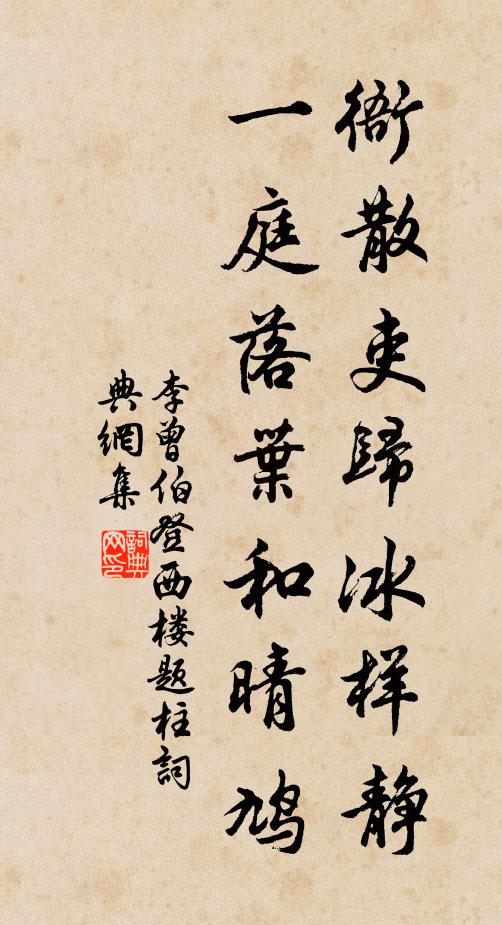 衙散吏歸冰样静
一庭落葉和晴鳩
李曾伯登西楼题柱詞
典網集
詞典网印